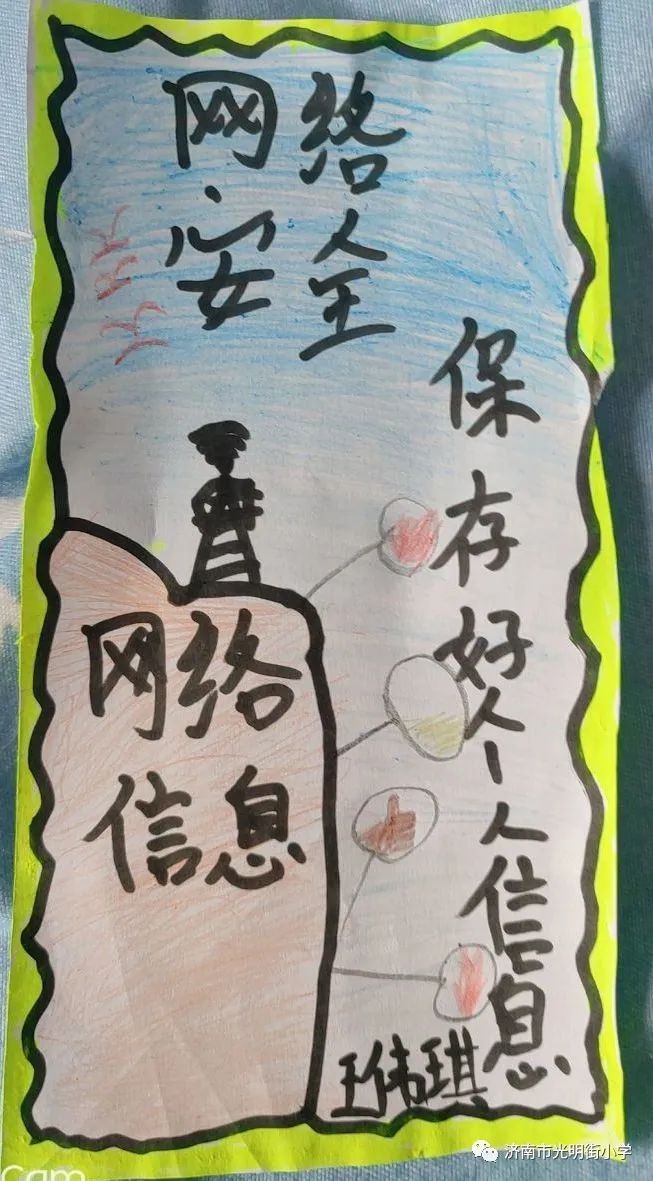 网络
安全
保存好个人信息
网络
信息
王伟琪
济南市光明街小学
cam